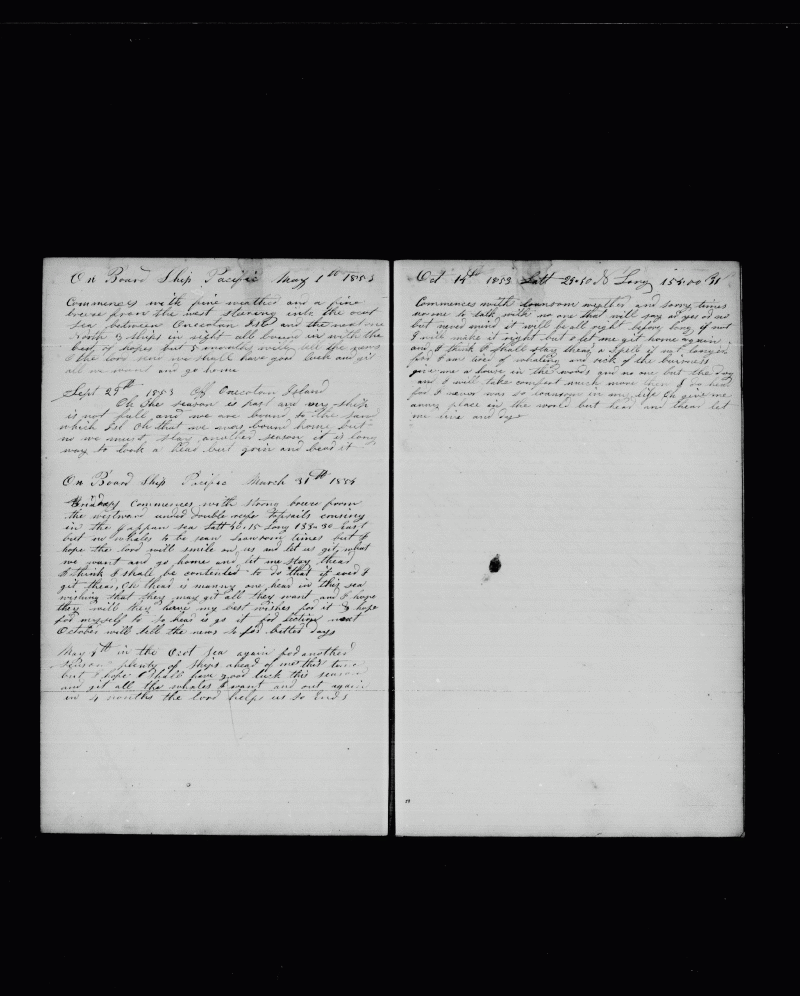 On Board Ship Pacific May 1st 1853
Commences with fine weather and a fine
breeze from the west stering into the ocot
sea between Onecotan Isld and the next one
North 8 ships in sight all bound in with the
best of hopes but I
& the lord send we shall have good luck and git
all we want and go home
Sept 29th 1853 Off Onecotan Island
Oh the season is past and my ship
is not full and we are bound to the
which Isl Oh that we ware bound home but
no we must stay another season it is long
way to look a head but goin and bear it
On Board Ship Pacific March 31th 1854
Commences with strong breeze from
the westward under double reefe topsails crusing
in the Jappan sea Latt 36.15 Long 133.30 East
but no whales to be sean lonsom times but I
hope the lord will smile on us and let us git what
we want and go home and let me stay thear
I think I shall be contented to do that if ever I
get thear, Oh thear is manny one hear in this sea
wishing that they may git all they want and I hope
they will they have my best wishes for it & hope
for myself to so hear is go it for next
October will tell the news so for better days
May 8th in the Ocot sea again for another
season plenty of ships ahead of me this time
but I hope I shall have good luck this season
and git all the whales I want and out again
in 4 months the lord helps us so Ends
Oct 14th 1853 Latt 25.50 N Long 158.00 W
Commences with lonsom weather and sorry times
no one to talk with no one that will say or yes or no
but never mind it will be all right before long if not
I will make it right but O let me git home again
and I think I shall stay thear a spell if not longer
for I am tire of whaling and sick of the buisness
give me a house in the woods and no one but the dog
and I will take comfort much more then I do hear
for I never was so lonsom in my life Oh give me
anny place in the world but hear and thear let
me live and dye